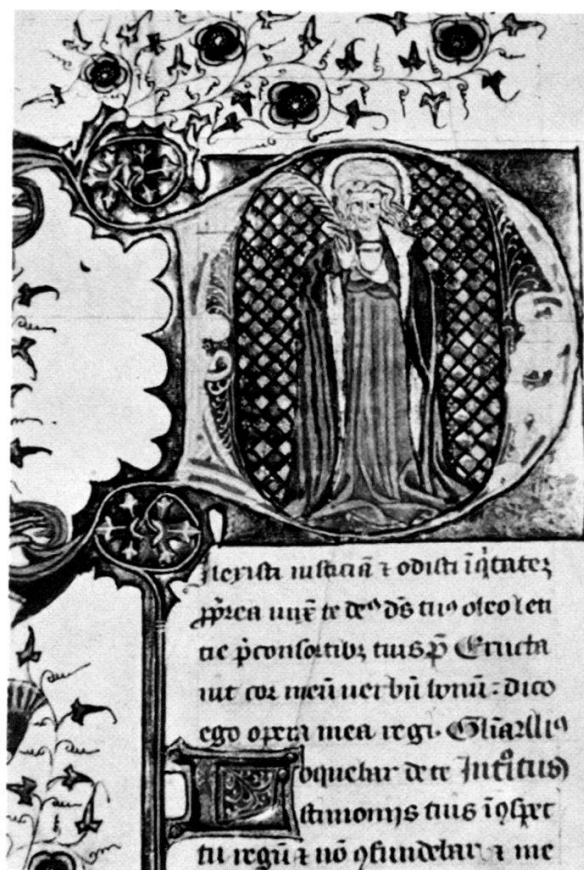 Dilexisti iusticiā ⁊ odisti īq̇tateꝫ
ꝓp̄rea unx̄ te deꝰ d̄s tuꝰ oleo leti
cie p̄ consortibꝫ tuis p̄ Eructa
uit cor meū uerbū bonū : dico
ego opera mea regi. Gl̄ia
Loquebar de te Int̊itus
stimonijs tuis ī ꝯspec
tu regū ⁊ nō ꝯfundebar ⁊ me